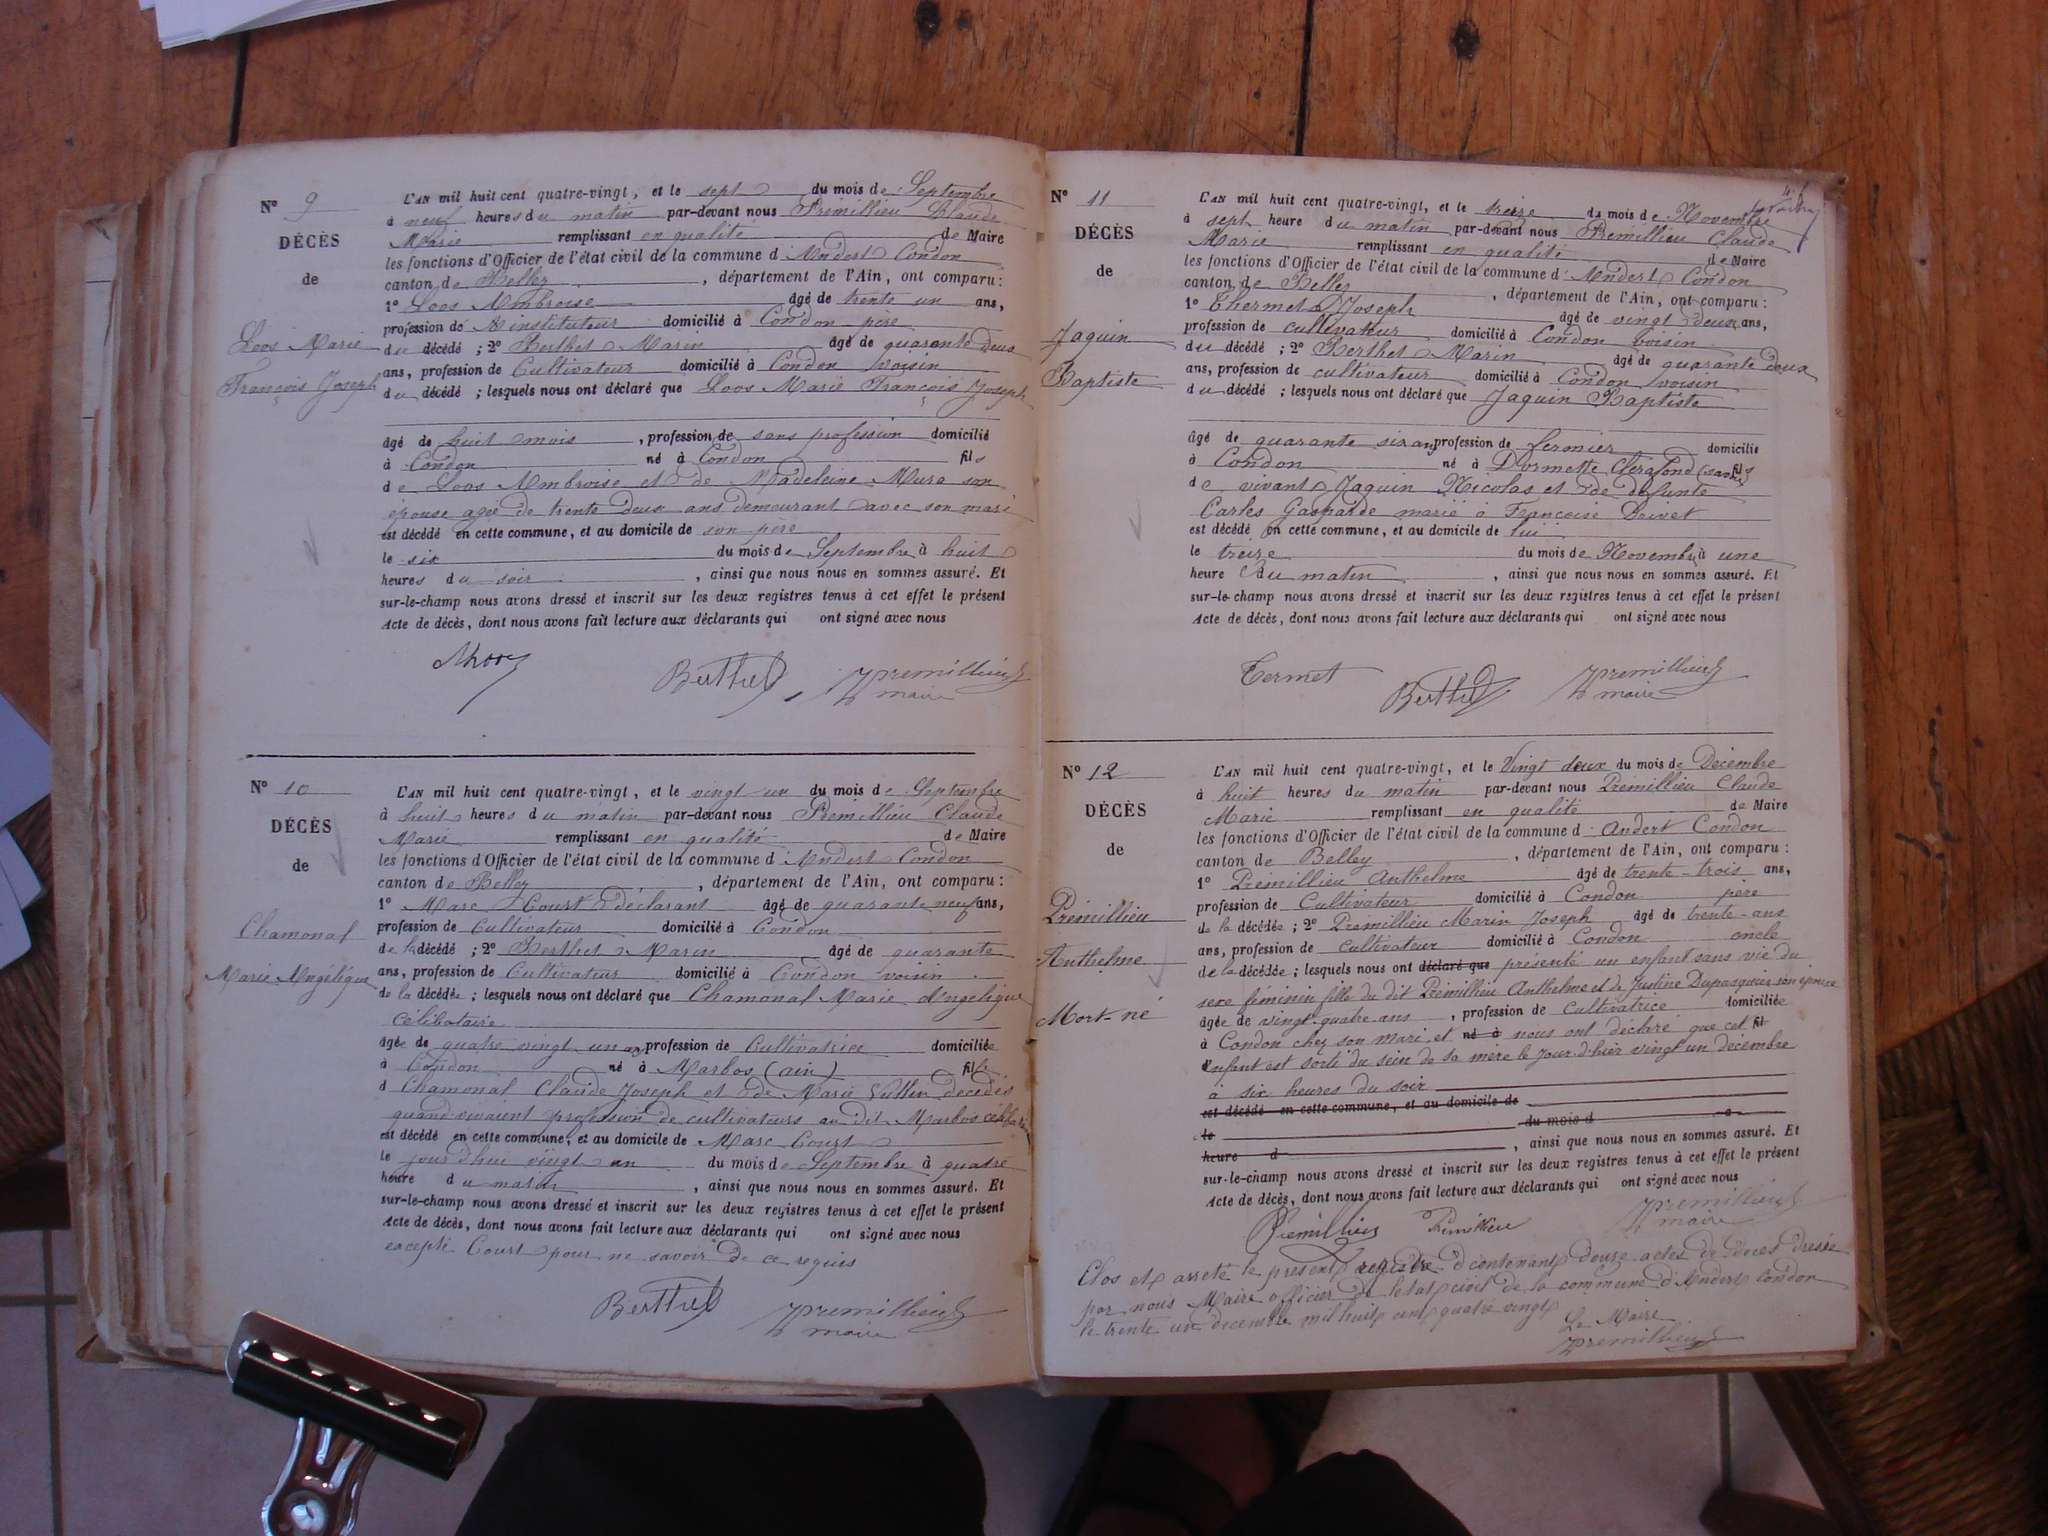 N° 9
DÉCÈS
de
Loos Marie
François Joseph
L'AN mil huit cent quatre-vingt, et le sept du mois de Septembre
à neuf heures du matin par-devant nous Prémillieu Claude
Marie remplissant en qualité de Maire
les fonctions d'Officier de l'état civil de la commune d'Andert Condon
canton de Belley, département de l'Ain, ont comparu :
1° Loos Ambroise âgé de trente un ans,
profession de instituteur domicilié à Condon père
du décédé ; 2° Berthet Marin âgé de quarante deux
ans, profession de Cultivateur domicilié à Condon voisin
du décédé ; lesquels nous ont déclaré que Loos Marie François Joseph
âgé de huit mois, profession de sans profession domicilié
à Condon né à Condon fils
de Loos Ambroise et de Madeleine Mure son
épouse agée de trente deux ans demeurant avec son mari
est décédé en cette commune, et au domicile de son père
le six du mois de Septembre à huit
heures du soir, ainsi que nous nous en sommes assuré. Et
sur-le-champ nous avons dressé et inscrit sur les deux registres tenus à cet effet le présent
Acte de décès, dont nous avons fait lecture aux déclarants qui ont signé avec nous
Berthet premillieu
maire
N° 10
DÉCÈS
de
Chamonal
Marie Angélique
L'AN mil huit cent quatre-vingt, et le vingt un du mois de Septembre
à huit heures du matin par-devant nous Prémillieu Claude
Marie remplissant en qualité de Maire
les fonctions d'Officier de l'état civil de la commune d'Andert Condon
canton de Belley, département de l'Ain, ont comparu :
1° Marc Court déclarant âgé de quarante neuf ans,
profession de Cultivateur domicilié à Condon
de la décédée ; 2° Berthet Marin âgé de quarante
ans, profession de Cultivateur domicilié à Condon voisin
de la décédée ; lesquels nous ont déclaré que Chamonal Marie Angelique
Célibataire
âgée de quatre vingt un ans profession de Cultivatrice domiciliée
à Condon né à Marbos (ain) fille
d Chamonal Claude Joseph et de Marie Vullin décédés
quand vivaient profession de cultivateurs au dit Marbos
est décédé en cette commune, et au domicile de Marc Court
le jourd'hui vingt un du mois de Septembre à quatre
heure du matin, ainsi que nous nous en sommes assuré. Et
sur-le-champ nous avons dressé et inscrit sur les deux registres tenus à cet effet le présent
Acte de décès, dont nous avons fait lecture aux déclarants qui ont signé avec nous
excepté Court pour ne savoir de ce requis
Berthet premillieu
maire
N° 11
DÉCÈS
de
Jaquin
Baptiste
L'AN mil huit cent quatre-vingt, et le treize du mois de Novembre
à sept heure du matin par-devant nous Prémillieu Claude
Marie remplissant en qualité de Maire
les fonctions d'Officier de l'état civil de la commune d'Andert Condon
canton de Belley, département de l'Ain, ont comparu :
1° Thermet Joseph âgé de vingt deux ans,
profession de cultivateur domicilié à Condon voisin
du décédé ; 2° Berthet Marin âgé de quarante deux
ans, profession de cultivateur domicilié à Condon voisin
du décédé ; lesquels nous ont déclaré que Jaquin Baptiste
âgé de quarante six ans profession de fermier domicilié
à Condon né à Dormette fils
de vivant Jaquin Nicolas et de défunte
Carles Gasparde marié à Françoise Deivet
est décédé en cette commune, et au domicile de lui
le treize du mois de Novembre à une
heure du matin, ainsi que nous nous en sommes assuré. Et
sur-le-champ nous avons dressé et inscrit sur les deux registres tenus à cet effet le présent
Acte de décès, dont nous avons fait lecture aux déclarants qui ont signé avec nous
Termet Berthet premillieu
maire
N° 12
DÉCÈS
de
Prémillieu
Anthelme
Mort-né
L'AN mil huit cent quatre-vingt, et le Vingt deux du mois de Décembre
à huit heures du matin par-devant nous Prémillieu Claude
Marie remplissant en qualité de Maire
les fonctions d'Officier de l'état civil de la commune d'Andert Condon
canton de Belley, département de l'Ain, ont comparu :
1° Prémillieu Anthelme âgé de trente-trois ans,
profession de Cultivateur domicilié à Condon père
de la décédée ; 2° Prémillieu Marin Joseph âgé de trente-ans
ans, profession de Cultivateur domicilié à Condon oncle
de la décédée ; lesquels nous ont déclaré que présenté un enfant sans vie du
sexe féminin fille du dit Prémillieu Anthelme et de Justine Dupasquier son épouse
âgée de vingt-quatre ans, profession de Cultivatrice domiciliée
à Condon chez son mari et né à nous ont déclaré que cet fil
enfant est sorti du sein de sa mère le jour d'hier vingt un décembre
à six heures du soir
est décédé en cette commune, et au domicile de
le du mois d à
heure d, ainsi que nous nous en sommes assuré. Et
sur-le-champ nous avons dressé et inscrit sur les deux registres tenus à cet effet le présent
Acte de décès, dont nous avons fait lecture aux déclarants qui ont signé avec nous
Prémillieu Prémillieu premillieu
maire
Clos et arrêté le présent registre contenant douze actes de décès dressé
par nous Maire officier de l'état civil de la commune d'Andert Condon
le trente un décembre mil huit cent quatre vingt
Le Maire
premillieu